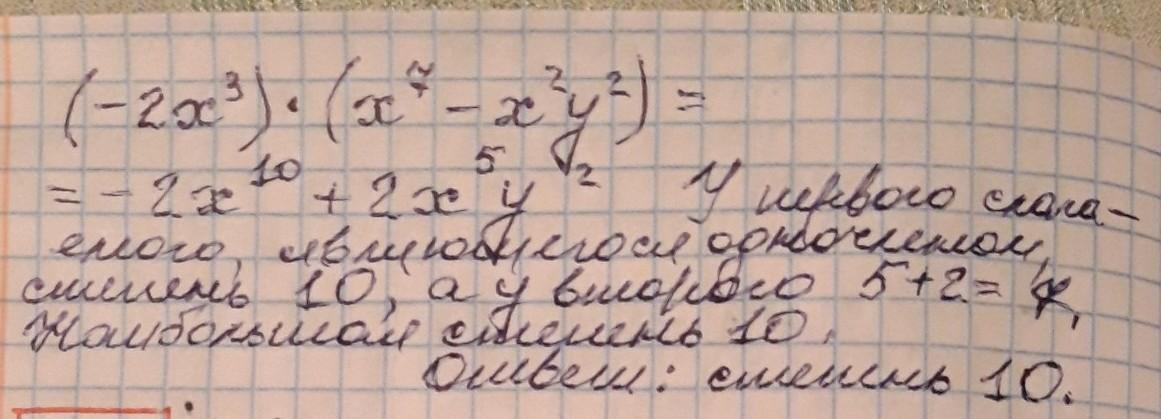 (-2x³)·(x⁷ - x²y²) =
= -2x¹⁰ + 2x⁵y² У первого слага-
емого, являющегося одночленом,
степень 10, а у второго 5+2=7,
Наибольшая степень 10.
Ответ: степень 10.